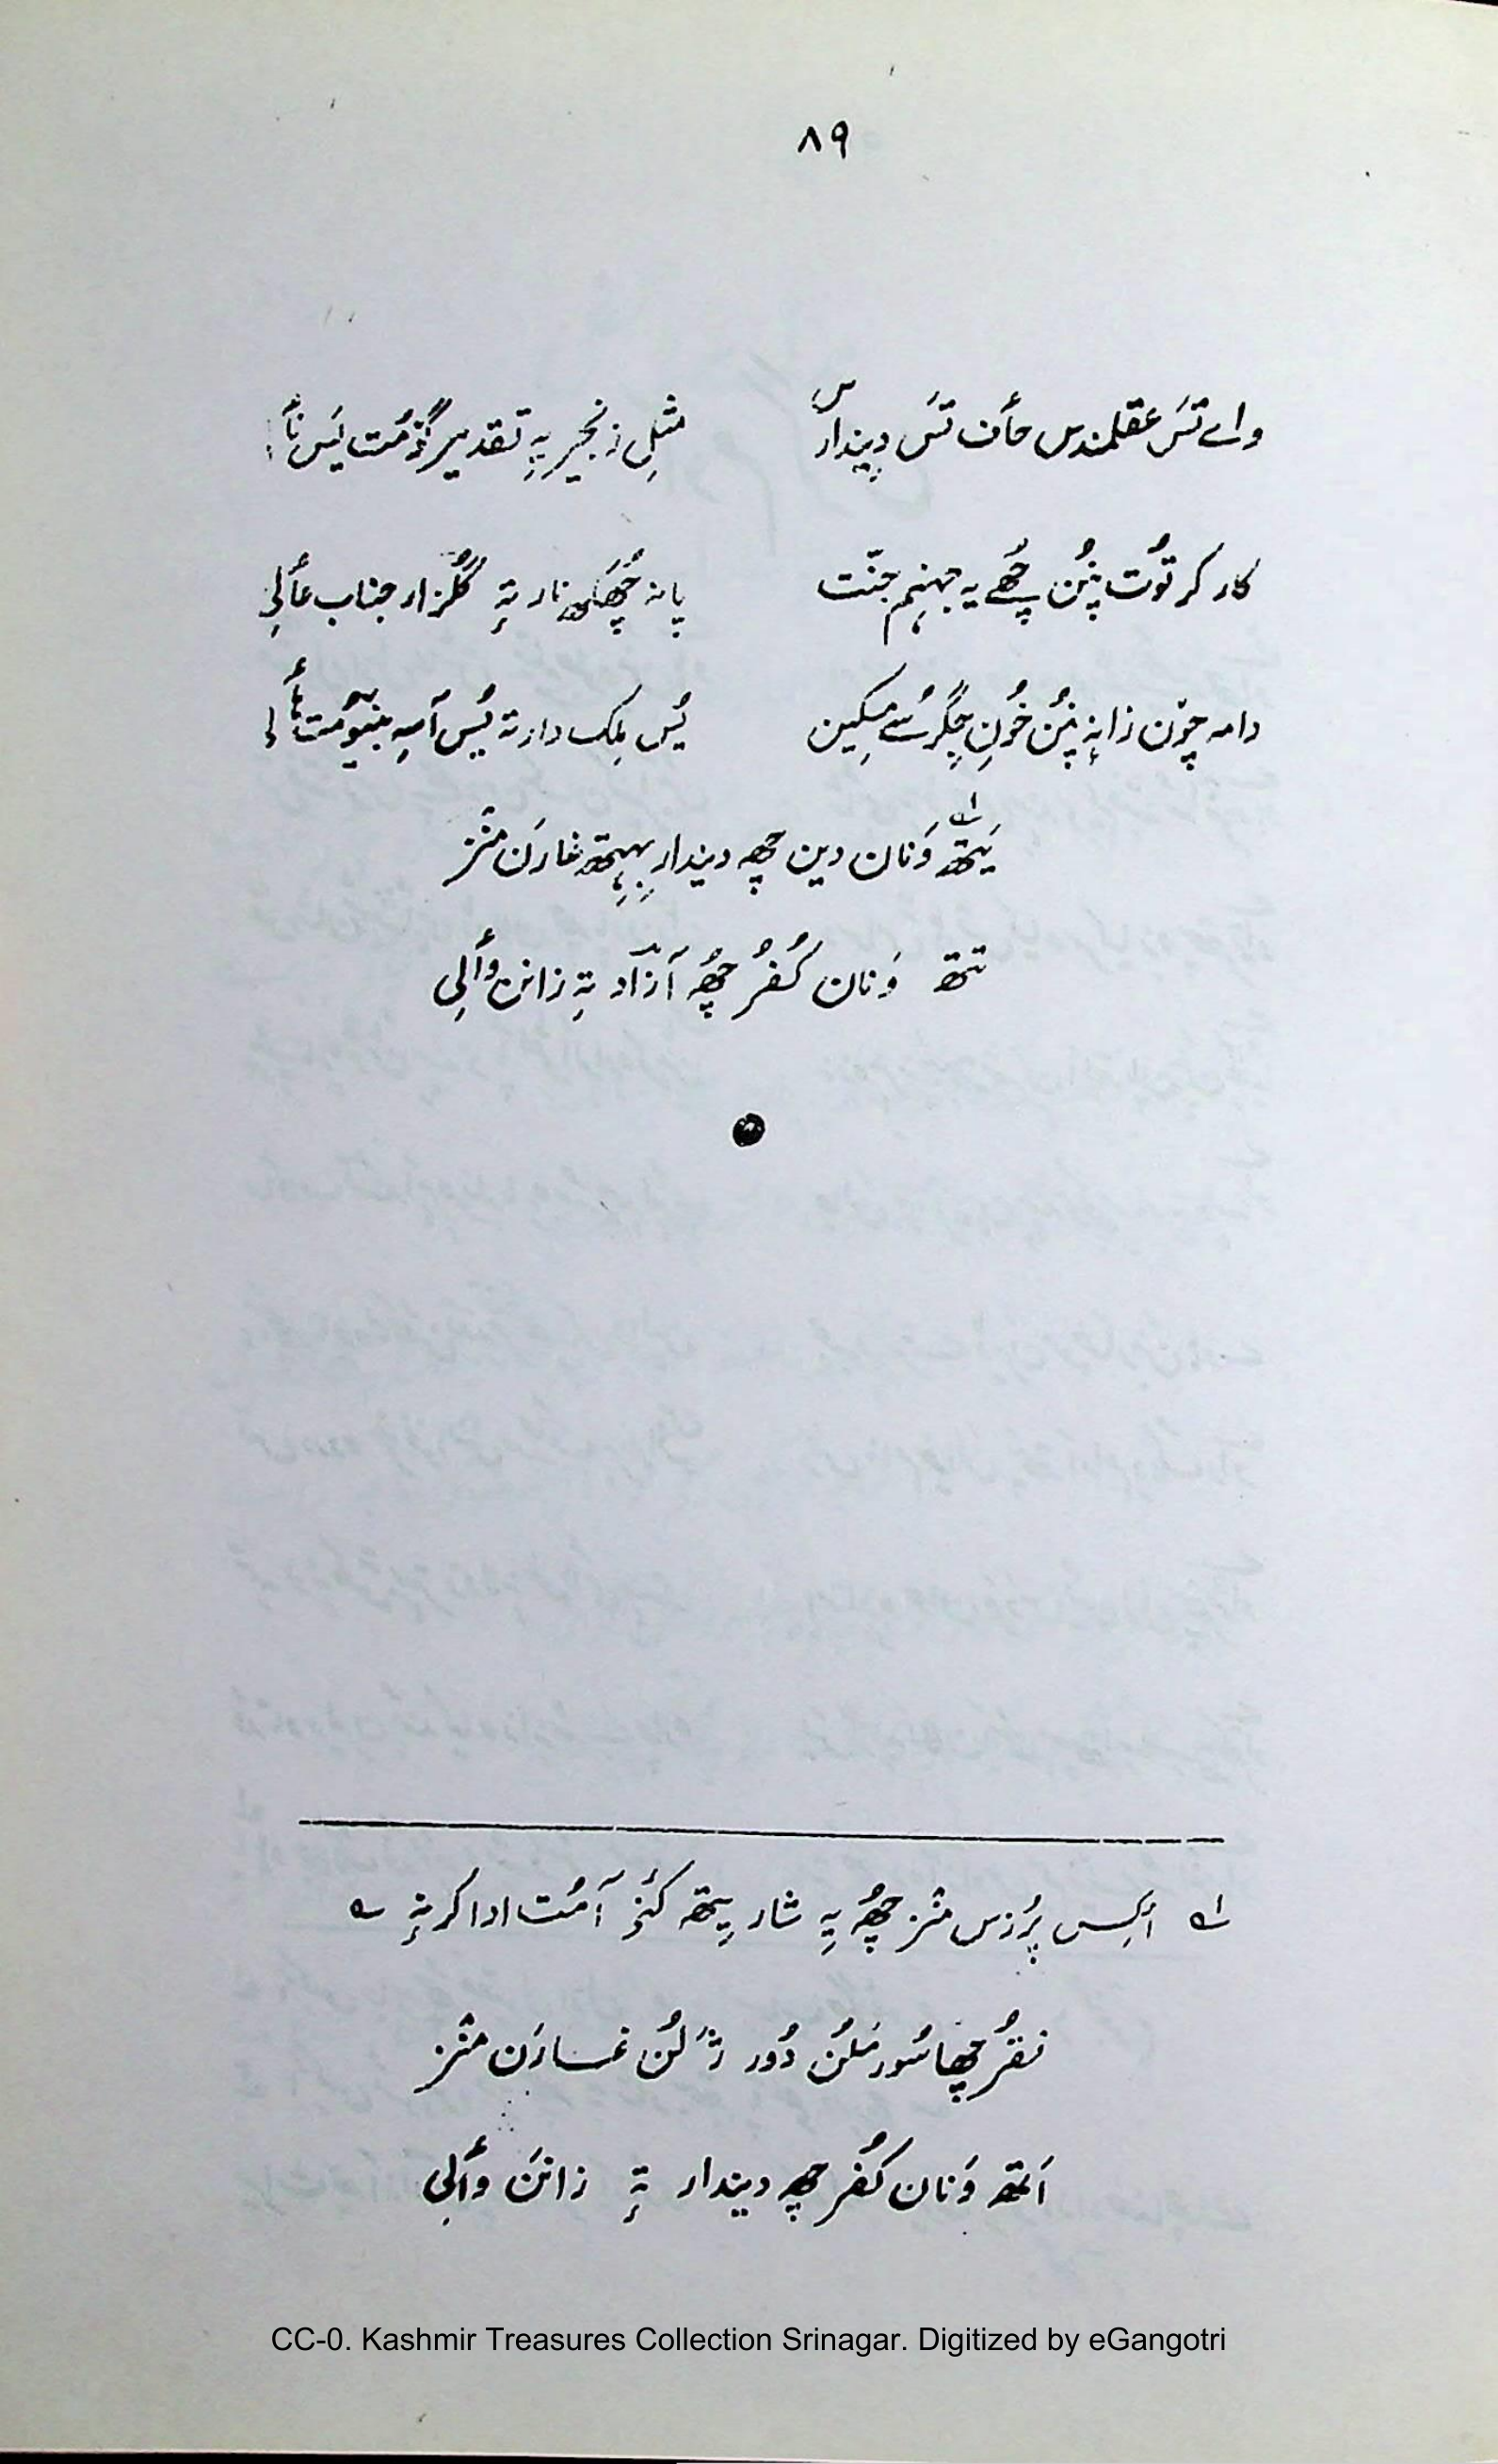 ۸۹
واے تَس عقلمندس حأف تَس دیندارس مثلِ زنجیر یہِ تقدیر گوٚمُت یَس
کار کر توٗت پنُن چُھے یہ جہنِم جنّت پانہ چُھکھ نار تہٕ گُلزار جناب عألی
دامہ چوٚن زانہِ پنُن خوٗنِ جِگر سُے مِسکین یُس مِلک دار تہ یُس آسہِ
یَتھ وَنان دین چھِ دیندار بِہِتھ غارَن منٛز
تتھ وَنان کُفُر چُھ آزاد تہٕ زانن وألی
۱؎ أکِس پُرزس منٛز چُھ یہِ شار یِتھہ کٔنۍ آمُت ادا کرنہٕ ؎
فقُر چھا سوٗر مَلُن دوٗر ژَلُن غارَن منٛز
اَتھ وَنان کُفُر چھِ دیندار تہٕ زانَن وألی
CC-0. Kashmir Treasures Collection Srinagar. Digitized by eGangotri